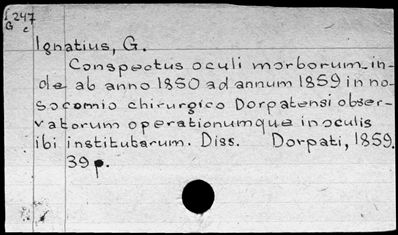 I 247
G c
Ignatius, G.
Conspectus oculi morborum in-
de ab anno 1850 ad annum 1859 in no-
socomio chirurgico Dorpatensi obser-
vatorum operationumque in oculis
ibi institutarum. Diss. Dorpati, 1859.
39 p.